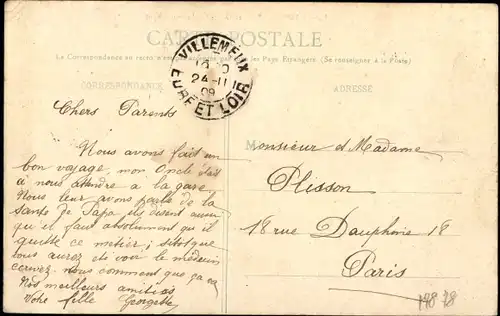 CARTE POSTALE
La Correspondance au recto n'est pas acceptée par tous les Pays Étrangers. (Se renseigner à la Poste)
CORRESPONDANCE
ADRESSE
VILLEMEUX
24-11
09
EURE ET LOIR
Chers Parents
Nous avons fait un
bon voyage, mon Oncle était
à nous attendre a la gare.
Nous leur avons parlé de la
santé de Papa, ils disent aussi
qu il faut absolument qu il
quitte ce métier; sitôt que
vous aurez été voir le médecin
ecrivez nous comment que ça va
Nos meilleurs amitiés
Votre fille Georgette
Monsieur et Madame
Plisson
18 rue Dauphine 18
Paris